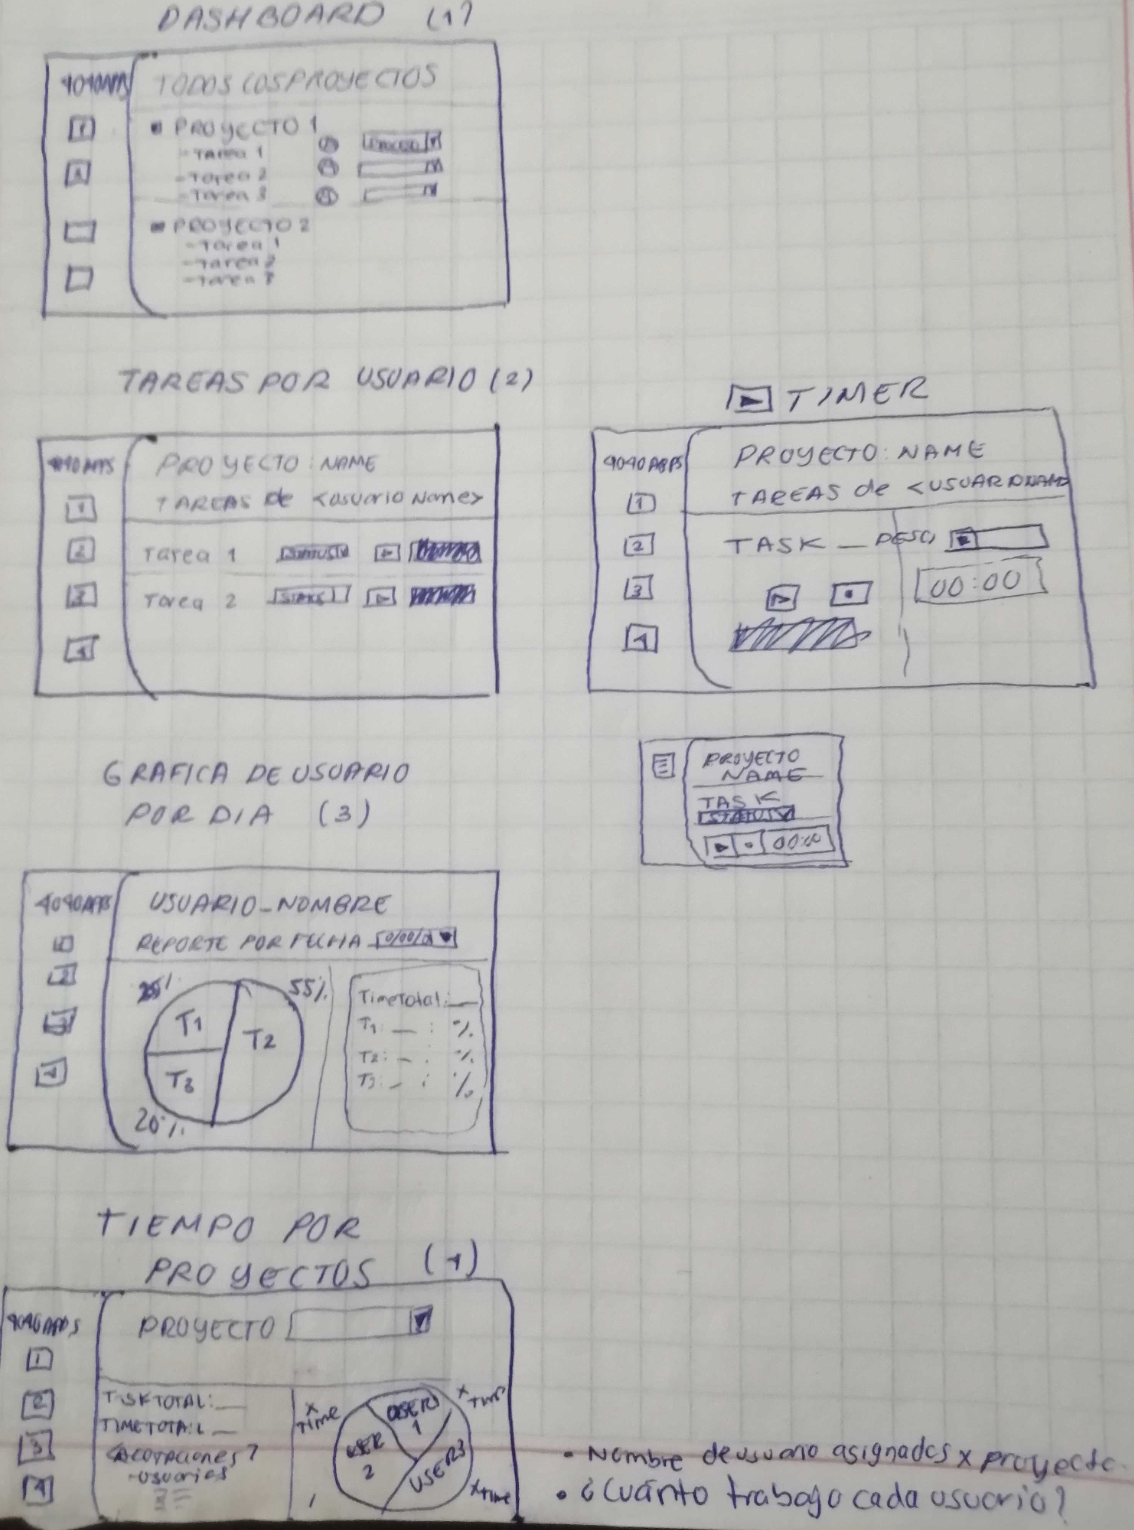 DASHBOARD (1)
4040APPS
TODOS LOS PROYECTOS
1
PROYECTO 1
- TAREA 1
2
- Tarea 2
- Tarea 3
PROYECTO 2
- Tarea 1
- Tarea 2
- Tarea 3
TAREAS POR USUARIO (2)
4040APPS
PROYECTO: NAME
TAREAS de <usuario Name>
1
2
3
4
Tarea 1 STATUS
Tarea 2 STATUS
TIMER
4040APPS
PROYECTO: NAME
TAREAS de <USUARIONAME
1
2
3
4
TASK _ DESC
00:00
PROYECTO
NAME
TASK
STATUS
00:00
GRAFICA DE USUARIO
POR DIA (3)
4040APPS
USUARIO_NOMBRE
REPORTE POR FECHA
2
3
4
55%
T1
T2
T3
20%
TimeTotal: __
T1: __ : %
T2: - . %
T3: - : %
TIEMPO POR
PROYECTOS (4)
4040APPS
PROYECTO
1
2
3
4
TASKTOTAL: __
TIMETOTAL __
-usuarios
X TIME
USER 1
USER 2
USER3
X TIME
X TIME
• Nombre de usuario asignados x proyecto.
• ¿Cuánto trabajo cada usuario?